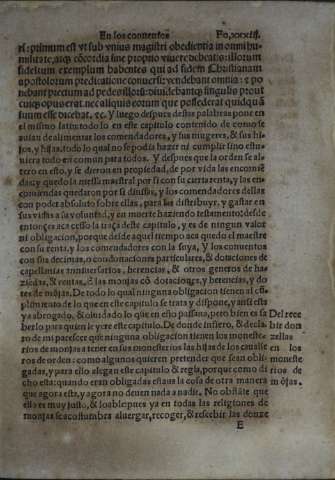 En los conuentos
Fo. xxxiij.
est vt sub vnius magistri obedientia in omni humilitate, atq; cōcordia sine proprio viuere debeatis: illorum
fidelium exemplum habentes qui ad fidem Christianam
apostolorum predicatione conuersi: vendebant omnia: & ponebant precium ad pedes illorū: diuidebantq; singulis prout
cuiq; opus erat. nec aliquis eorum que possederat quidquā
suum esse dicebat. &c. Y luego despues destas palabras pone en
el mismo latin todo lo en este capitulo contenido de como se
auian de alimentar los comendadores, y sus mugeres, & sus hijos, y hijas, todo lo qual no se podia hazer ni cumplir sino estuuiera todo en comun para todos. Y despues que la orden se altero en esto, y se dieron en propiedad, de por vida las encomiēdas: y quedo la mesa maestral por si con su cierta renta, y las encomiendas quedaron por si diuisas, y los comendadores dellas
con poder absoluto sobre ellas, para las distribuyr, y gastar en
sus vidas a su volūtad, y en muerte haziendo testamento: desde
entonçes aca cesso la traça deste capitulo, y es de ningun valor
ni obligacion, porque desde aquel tiempo aca quedo el maestre
con su renta, y los comendadores con la suya, Y los conuentos
con sus decimas, o condonaciones particulares, & dotaciones de
capellanias anniuersarios, herencias, & otros generos de haziēdas, & rentas, & las monjas cō dotaçones, y herencias, y dotes de mōjas. De todo lo qual ninguna obligacion tienen al
cumplimiento de lo que en este capitulo se trata y dispone, y ansi esta
ya abrogado, & oluidado lo que en ello passaua, pero bien es saberlo para quien leyere este capitulo. De donde infiero, & declaro de mi parescer que ninguna obligacion tienen los monesterios de monjas a tener en los monesterios las hijas de los caualleros de orden: como algunos quieren pretender que sean obligadas, y para ello alegan este capitulo & regla, porque como dicho esta: quando eran obligadas estaua la cosa de otra manera
que agora esta, y agora no deuen nada a nadie. No obstāte que
ello es muy justo, & loable pues ya en todas las religiones de
monjas se acostumbra aluergar, recoger, & rescebir las donze
Del rece
bir don
zellas
en los
moneste
rios de
mōjas.
E